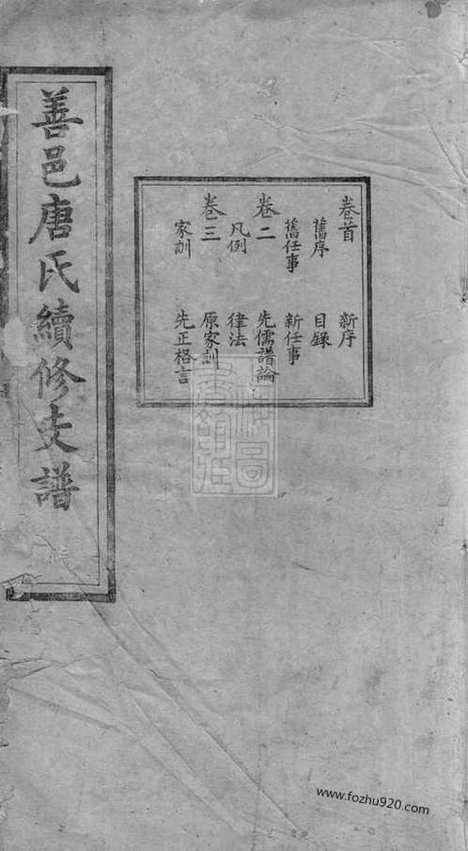 善邑唐氏續修支譜
卷首 新序
舊序 目錄
舊任事 新任事
卷二 先儒譜論
凡例 律法
卷三 原家訓
家訓 先正格言
www.fozhu920.com